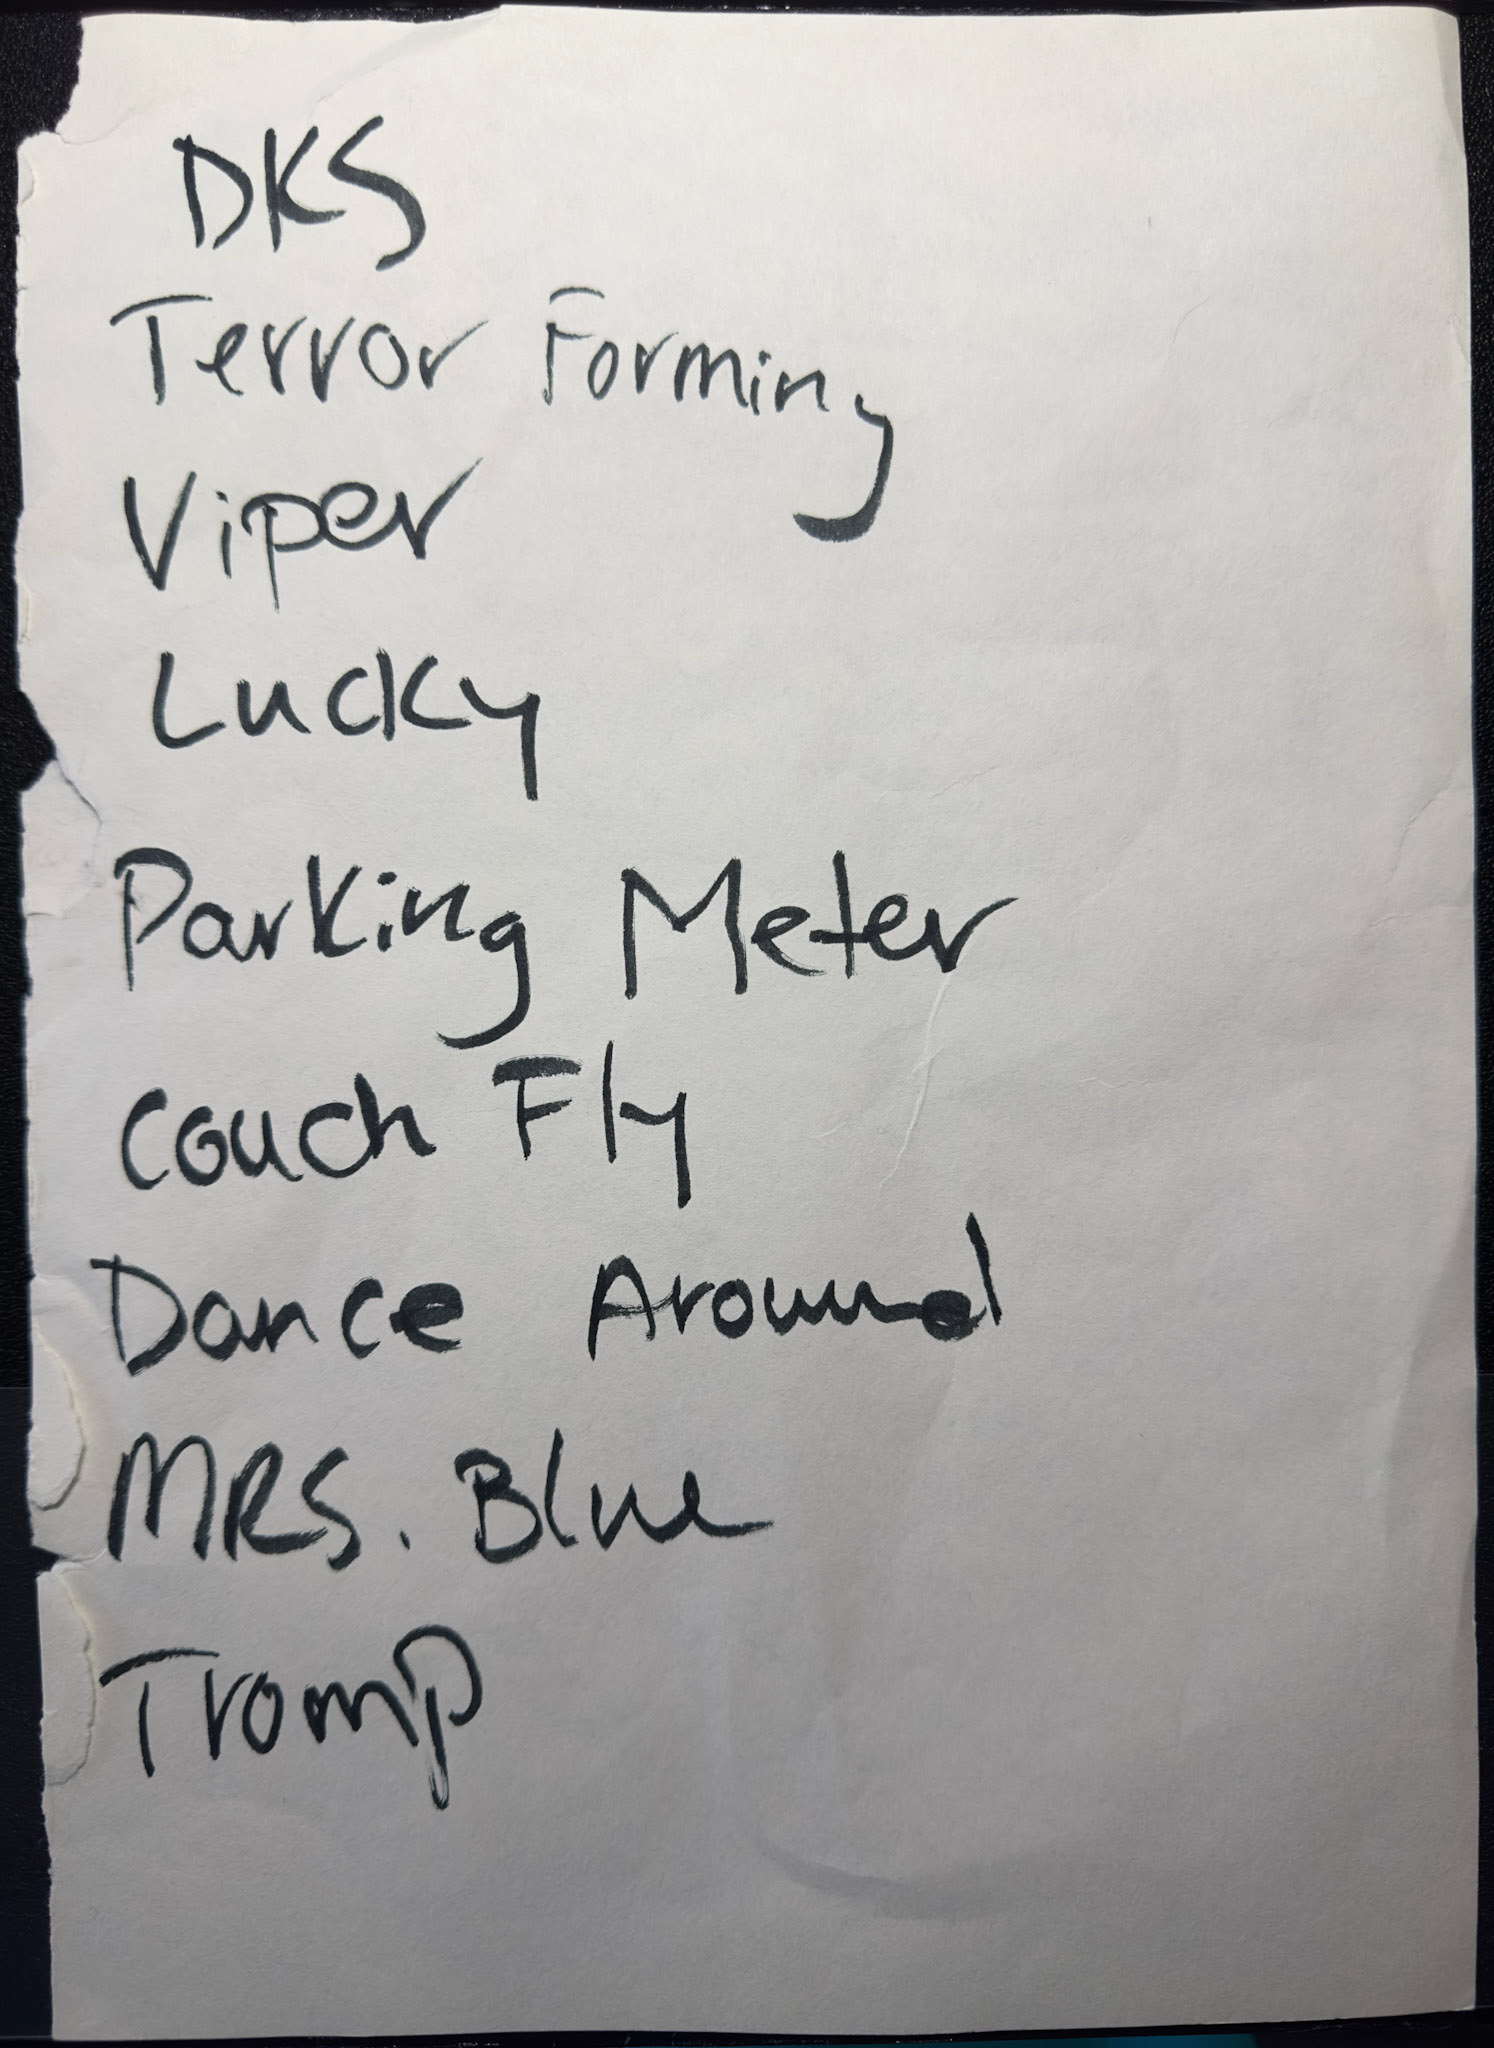 DKS
Terror Forming
Viper
Lucky
Parking Meter
Couch Fly
Dance Around
MRS. Blue
Tromp